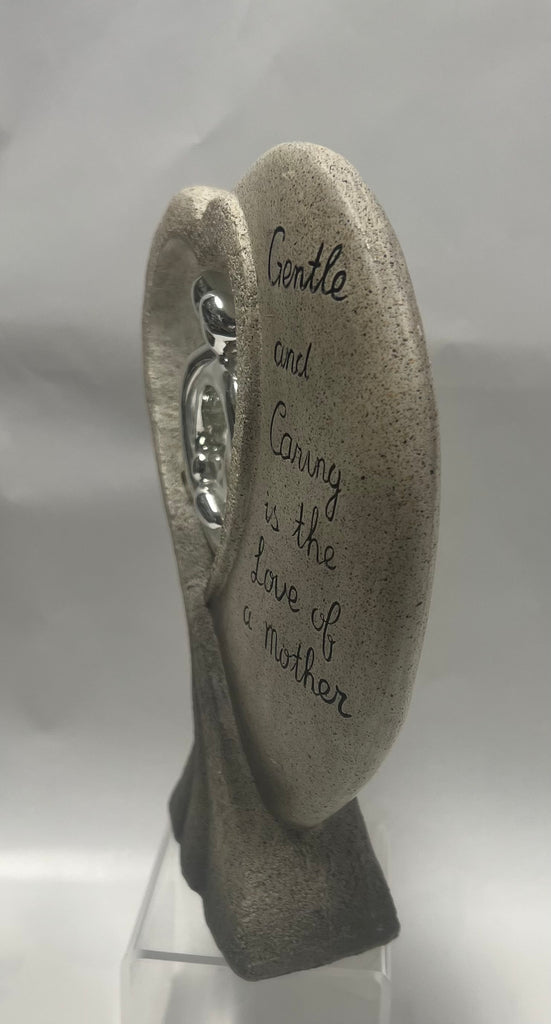 Gentle
and
Caring
is the
Love of
a mother